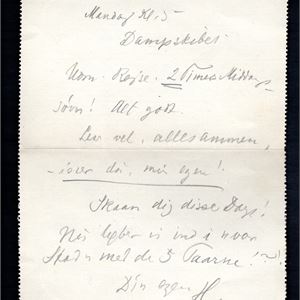 Mandag Kl. 5
Dampskibet
Rejse. 2 Timers Middags-
søvn! Alt godt.
Lev vel, allesammen,
– især du, min egen!
Skaan dig disse Dage!
Nu løber vi ind i vor
Stad m med de 5 Taarne!
Din egen H